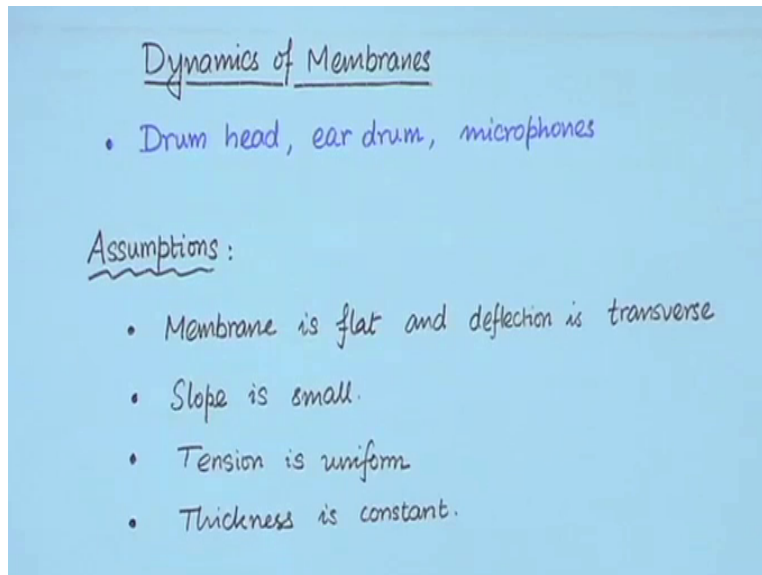 Dynamics of Membranes
• Drum head, ear drum, microphones
Assumptions:
• Membrane is flat and deflection is transverse
• Slope is small.
• Tension is uniform
• Thickness is constant.